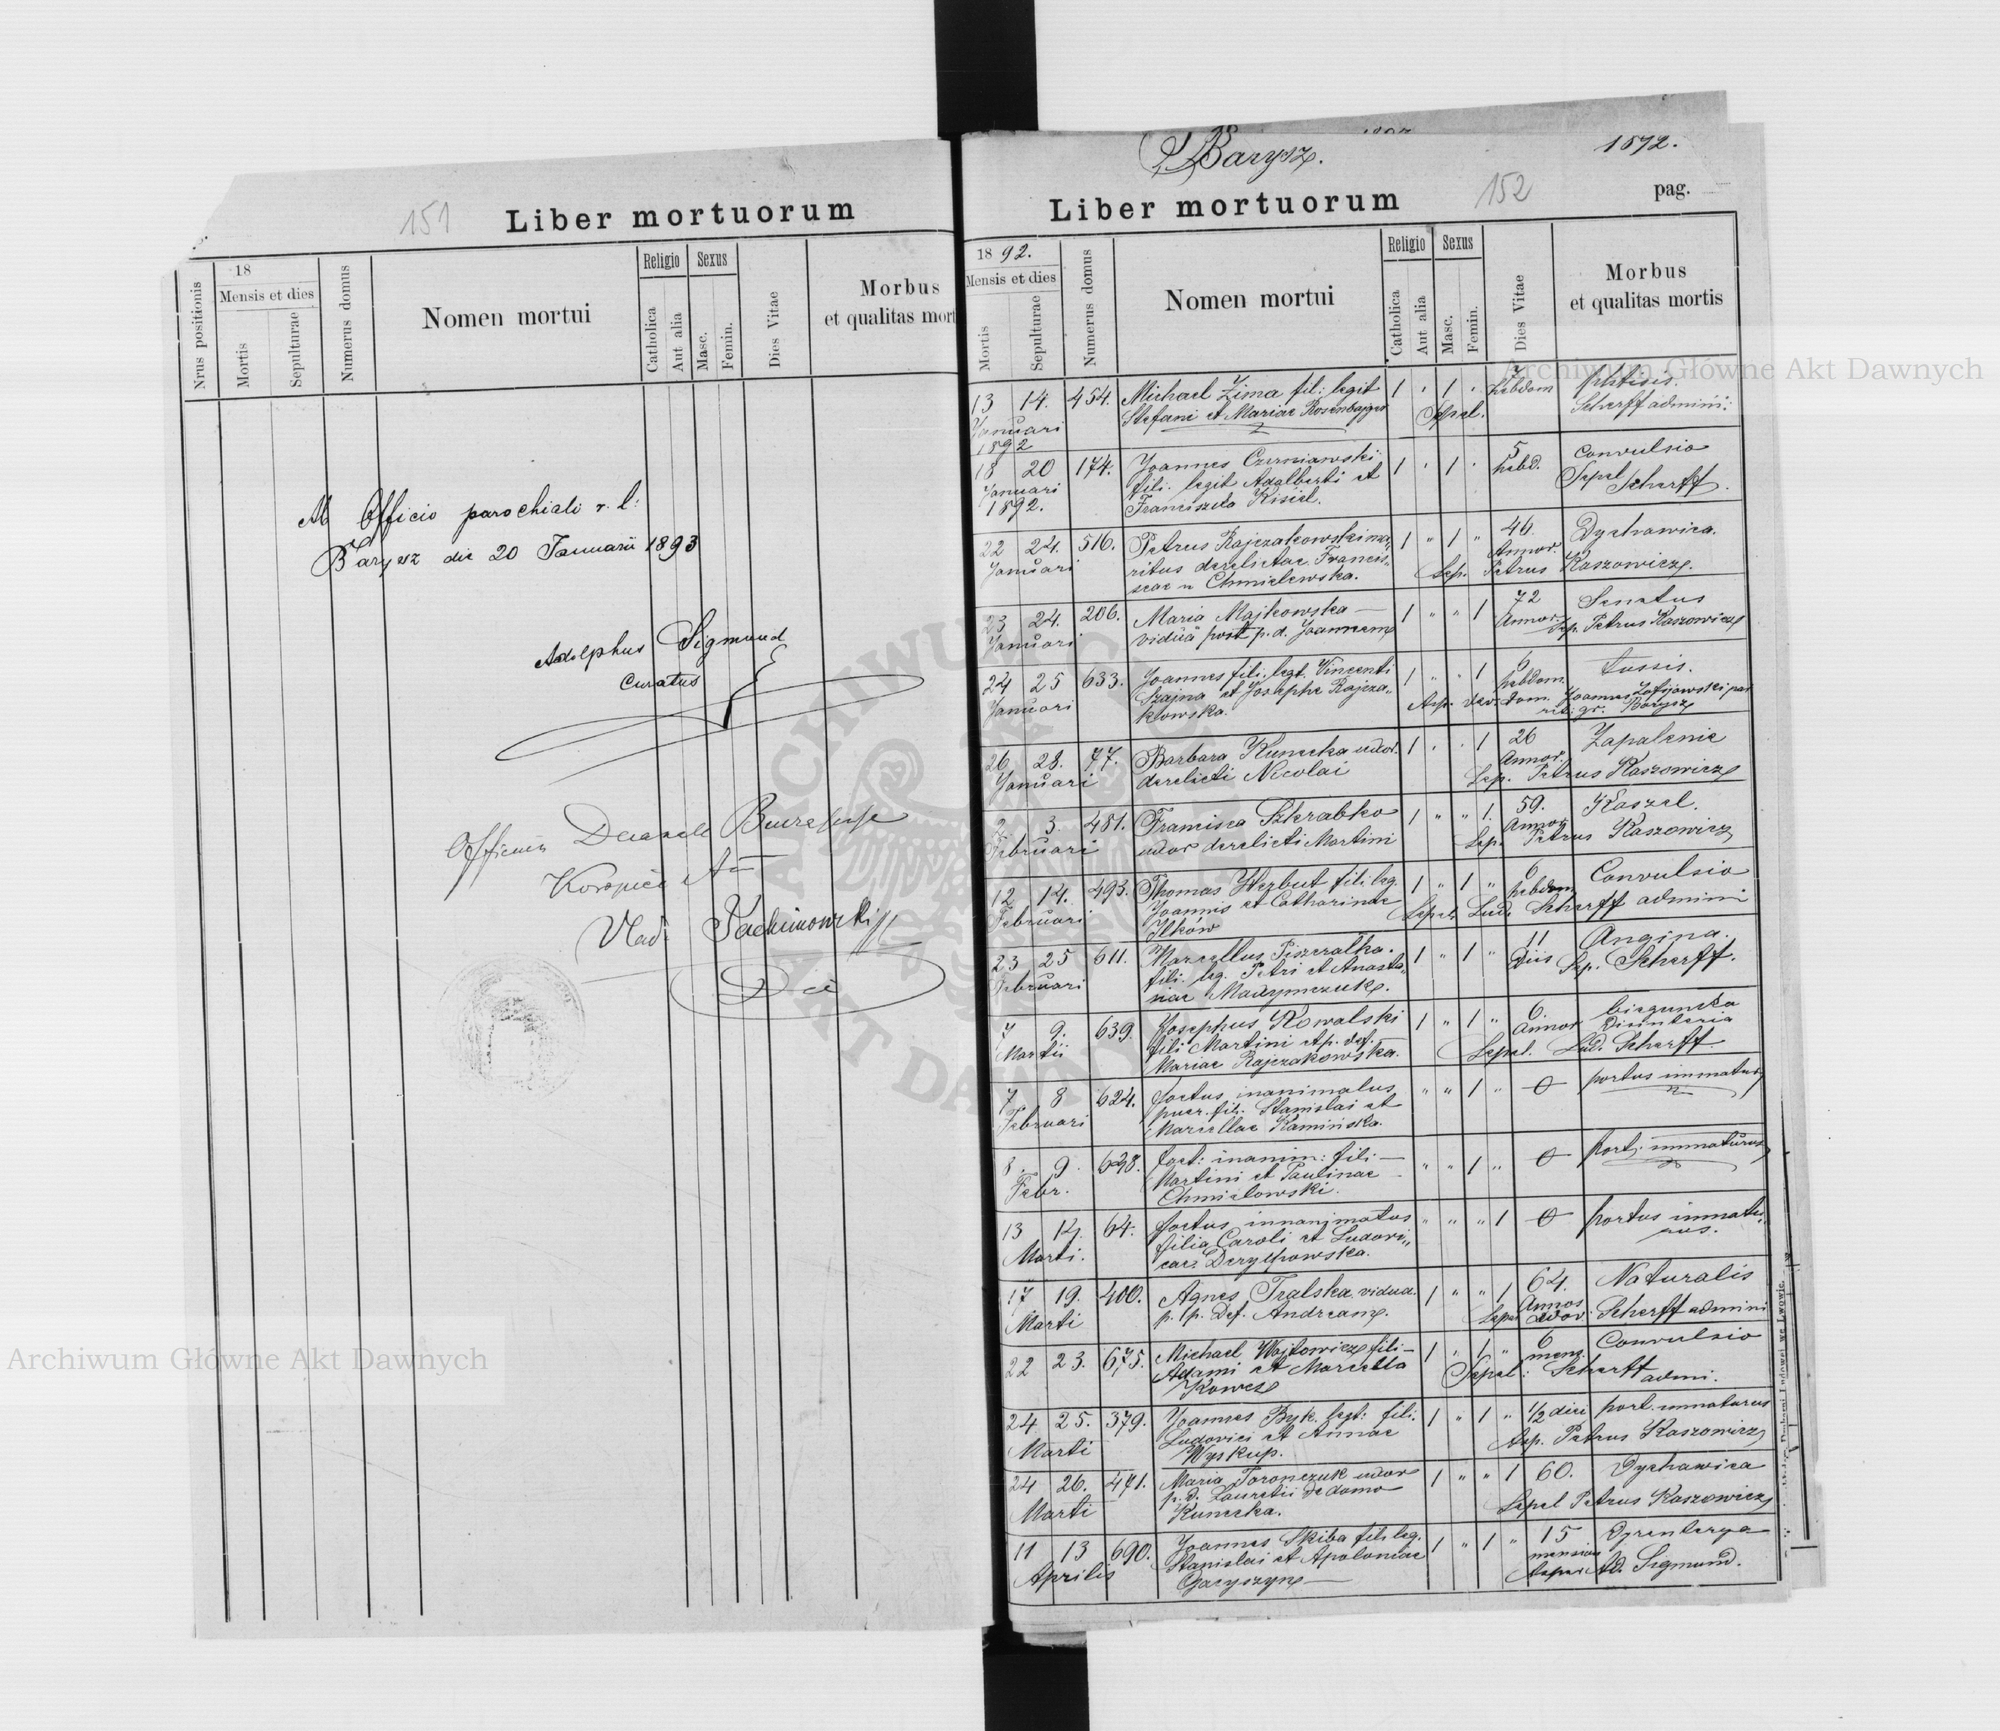 151
Liber mortuorum
Nrus positionis
18
Mensis et dies
Mortis
Sepulturae
Numerus domus
Nomen mortui
Religio
Catholica
Aut alia
Sexus
Masc.
Femin.
Dies Vitae
Morbus
et qualitas mort
Ab Officio parochiali r. l:
Barysz die 20 Januarii 1893
Adolphus Sigmund
Curatus
Vlad:
Barysz.
1892.
Liber mortuorum
152
pag.
1892.
Mensis et dies
Mortis
Sepulturae
Numerus domus
Nomen mortui
Religio
Catholica
Aut alia
Sexus
Masc.
Femin.
Dies Vitae
Morbus
et qualitas mortis
13 14. 454. Michael Zima fil: legit 1 " 1 " 7 phtisis.
Januari Stefani et Mariae Rosenbajger Sepel. hebdom Scherff admini:
1892
18 20 174. Joannes Czerniawski 1 " 1 " 5 Convulsio
Januari fili. legit Adalberti et hebd. Sepel Scherff.
1892. Franciszka Kisiel.
22 24. 516. Petrus Rajczakowski ma„ 1 " 1 " 46 Dychawica.
Januari ritus derelictae Francis„ Annor. Sep. Petrus Kaszowicz.
scae n Chmielewska.
23 24. 206. Maria Majkowska — 1 " " 1 72 Senatus
Januari vidua post p. d. Joannem Annor. Sep. Petrus Kaszowicz
24 25 633. Joannes fili. legt. Vincenti 1 " " 1 6 tussis.
Januari Szajna et Josephe Rajcza„ hebdom.
kowska.
26 28. 77. Barbara Kunecka uxor. 1 " " 1 26 Zapalenie
Januari derelicti Nicolai Annor. Sep. Petrus Kaszowicz
2. 3. 481. Francisca Szkrabko 1 " " 1. 59. Kaszel.
Februari uxor derelicti Martini Annor. Sep. Petrus Kaszowicz
12 14. 493. Thomas Herbut fili. leg. 1 " 1 " 6 Convulsio
Februari Joannis et Catharinae hebdom Sepel. Lud. Scherff admini
Ilków
23 25 611. Marcellus Piszczatka. 1 " 1 " 11 Angina.
Februari fili. leg. Petri et Anasta„ Dies Sep. Scherff.
siae Madymczuk.
7 9. 639. Josephus Kowalski 1 " 1 " 6. biegunka
Martii fili Martini et p. def. Annor Disinteria
Mariae Rajczakowska. Sepel. Lud. Scherff
7 8 624. foetus inanimatus " " 1 " 0 partus immaturus
Februari puer. fili. Stanislai et
Marcellae Kamińska.
8. 9. 638. foet: inanim: fili — " " 1 " 0 part: immaturus
Febr. Martini et Paulinae
Chmielowski.
13 14. 64. foetus innanimatus " " " 1 0 partus immatu„
Marti. filia Caroli et Ludovi„ rus.
cae Derylowska.
17 19. 400. Agnes Tralska vidua. 1 " " 1 64. Naturalis
Marti p. p. Def. Andream. Annos Scherff admini
22 23. 675. Michael Wojtowicz fili — 1 " 1 " 6 Convulsio
Adami et Marcella mens. Sepel: Scherff
Kowcz admi.
24 25. 379. Joannes Byk. legt: fili: 1 " 1 " 1/2 diei part. immaturus
Marti Ludovici et Annae Sep. Petrus Kaszowicz
Wyskup.
24 26. 471. Maria Toronczuk uxor 1 " " 1 60. Dychawica
Marti p. d. Laurentii de domo Sepel Petrus Kaszowicz
Kunecka.
11 13 690. Joannes Skiba fili. leg. 1 " 1 " 15 Dyzenterya
Aprilis Stanislai et Apoloniae mensium Ad. Sigmund.
Garyszyn —
Archiwum Główne Akt Dawnych
Archiwum Główne Akt Dawnych
ARCHIWUM
AKT DAWNYCH